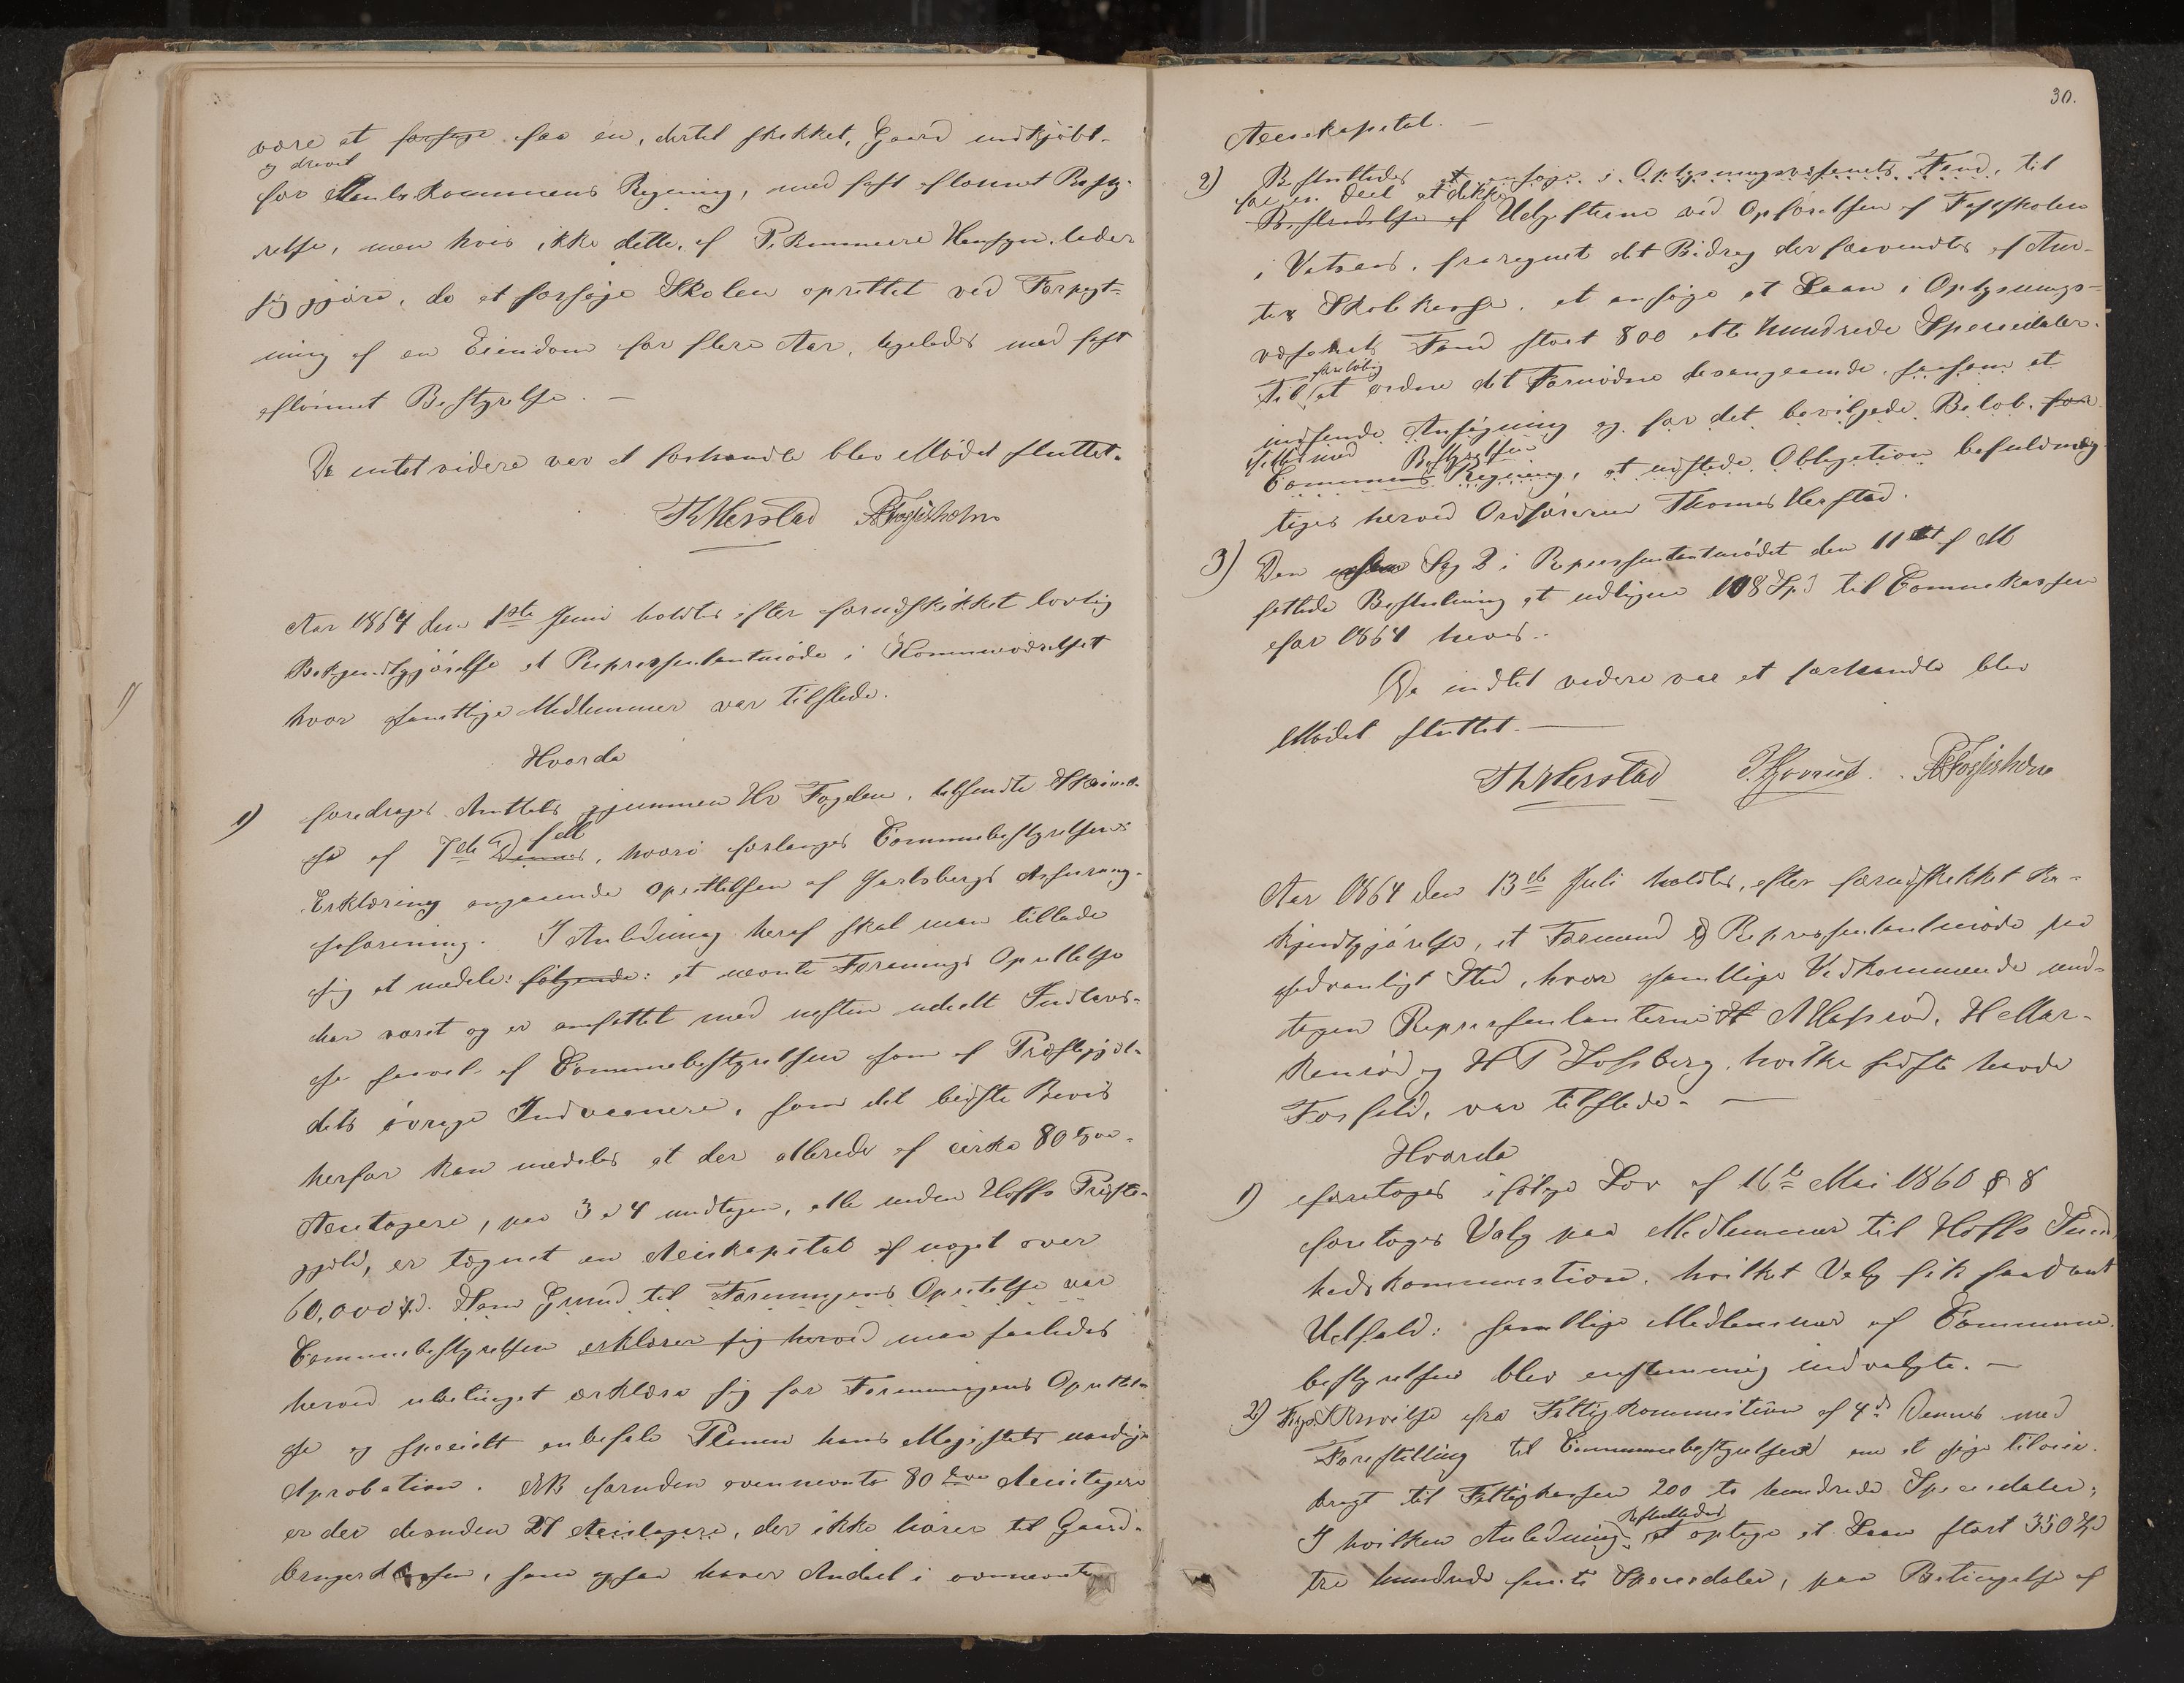 være at forsøge faa en, dertil skikket, Gaard indkjøbt
og drevet
for Amtskommunens Regning, med fast aflønnet Besty-
relse, men hvis ikke dette, af Pekuniære Hensyn, lader
sig gjøre, da at forsøge Skolen oprettet ved Forpagt-
ning af en Eiendom for flere Aar, ligeledes med fast
aflønnet Bestyrelse. —
Da intet videre var at forhandle blev Mødet sluttet.
Th Herstad A Fogisholm
Aar 1864 den 1ste Juni holdtes efter forudskikket lovlig
Bekjendtgjørelse et Repræsentantmøde i Kommuneværelset
hvor samtlige Medlemmer var tilstede.
Hvorda
1) foredroges Amtets gjennem Hr Fogden, tilsendte Skrivel-
se af 7de Dennes, hvori forlanges Communebestyrelsens
Erklæring angaaende Oprettelsen af Jarlsbergs Assurang-
seforening. I Anledning heraf skal man tillade
sig at medele: følgende: at nævnte Forenings Oprettelse
har været og er omfattet med næsten udeelt Interes-
se saavel af Communebestyrelsen som af Præstegjel-
dets øvrige Indvaanere, som det bedste Bevis
herfor kan medeles at der allerede af cirka 80
Assetagere, paa 3 a 4 undtagen, alle inden Hoffs Præste-
gjeld, er tegnet en Actiekapital af noget over
60,000 Spd. Som Grund til Foreningens Oprettelse var
Communebestyrelsen erklærer sig herved maa saaledes
herved ubetinget erklære sig for Foreningens Oprettel-
se og specielt anbefale Planen hans Majestæts naadige
Aprobation. NB foruden ovennævnte 80 Actietagere
er der desuden 27 Actietagere, der ikke hører til Gaard-
brugerklassen, som ogsaa haver Andeel i ovennævnte
30.
Actiekapital. —
2) Besluttedes at ansøge i Oplysningsvæsenets Fond, til
for en Deel at dække
Bestridelse af Udgifterne ved Opførelsen af Fastskolen
i Vataas, fraregnet det Bidrag der forventes af Am-
tes Skolekasse, at ansøge et Laan i Oplysnings-
væsenets Fond stort 800 otte hundrede Speciedaler.
foreløbig
Til at ordne det Fornødne desangaaende, saasom at
indsende Ansøgning og for det bevilgede Beløb, for
Bestyrelsen
Communens Regning, at udstede Obligation befuldmæg-
tiges herved Ordføreren Thomas Herstad.
3) Den under Sag 2 i Repræsentantmødet den 11te f M
fattede Beslutning at udligne 108 Spd til Communekassen
for 1864 hæves.
Da indtet videre var at forhandle blev
Mødet sluttet. —
Th Herstad A Fogisholm
Aar 1864 den 13de Juli holdtes, efter forudskikket Be-
kjendtgjørelse, et Formand og Repræsentantmøde paa
sedvanligt Sted, hvor samtlige Vedkommende und-
tagen Repræsentanterne H Aflassrød, H Mar-
kenrød og H P Solsberg, hvilke sidste havde
Forfald, var tilstede. —
Hvorda
1) foretoges ifølge Lov af 16de Mai 1860 § 8
foretoges Valg paa Medlemmer til Hoffs Sund-
hedskommission, hvilket Valg fik saadant
Udfald: samtlige Medlemmer af Commune-
bestyrelsen blev enstemmig indvalgte. —
2) Skrivelse fra Fattigkommisionen af 4de Dennes med
Forestilling til Communebestyrelsen om at søge tilveie-
bragt til Fattigkassen 200 to hundrede Speciedaler;
Besluttedes
I hvilken Anledning at optage et Laan stort 350 Spd
tre hundrede femti Speciedaler, paa Betingelse af